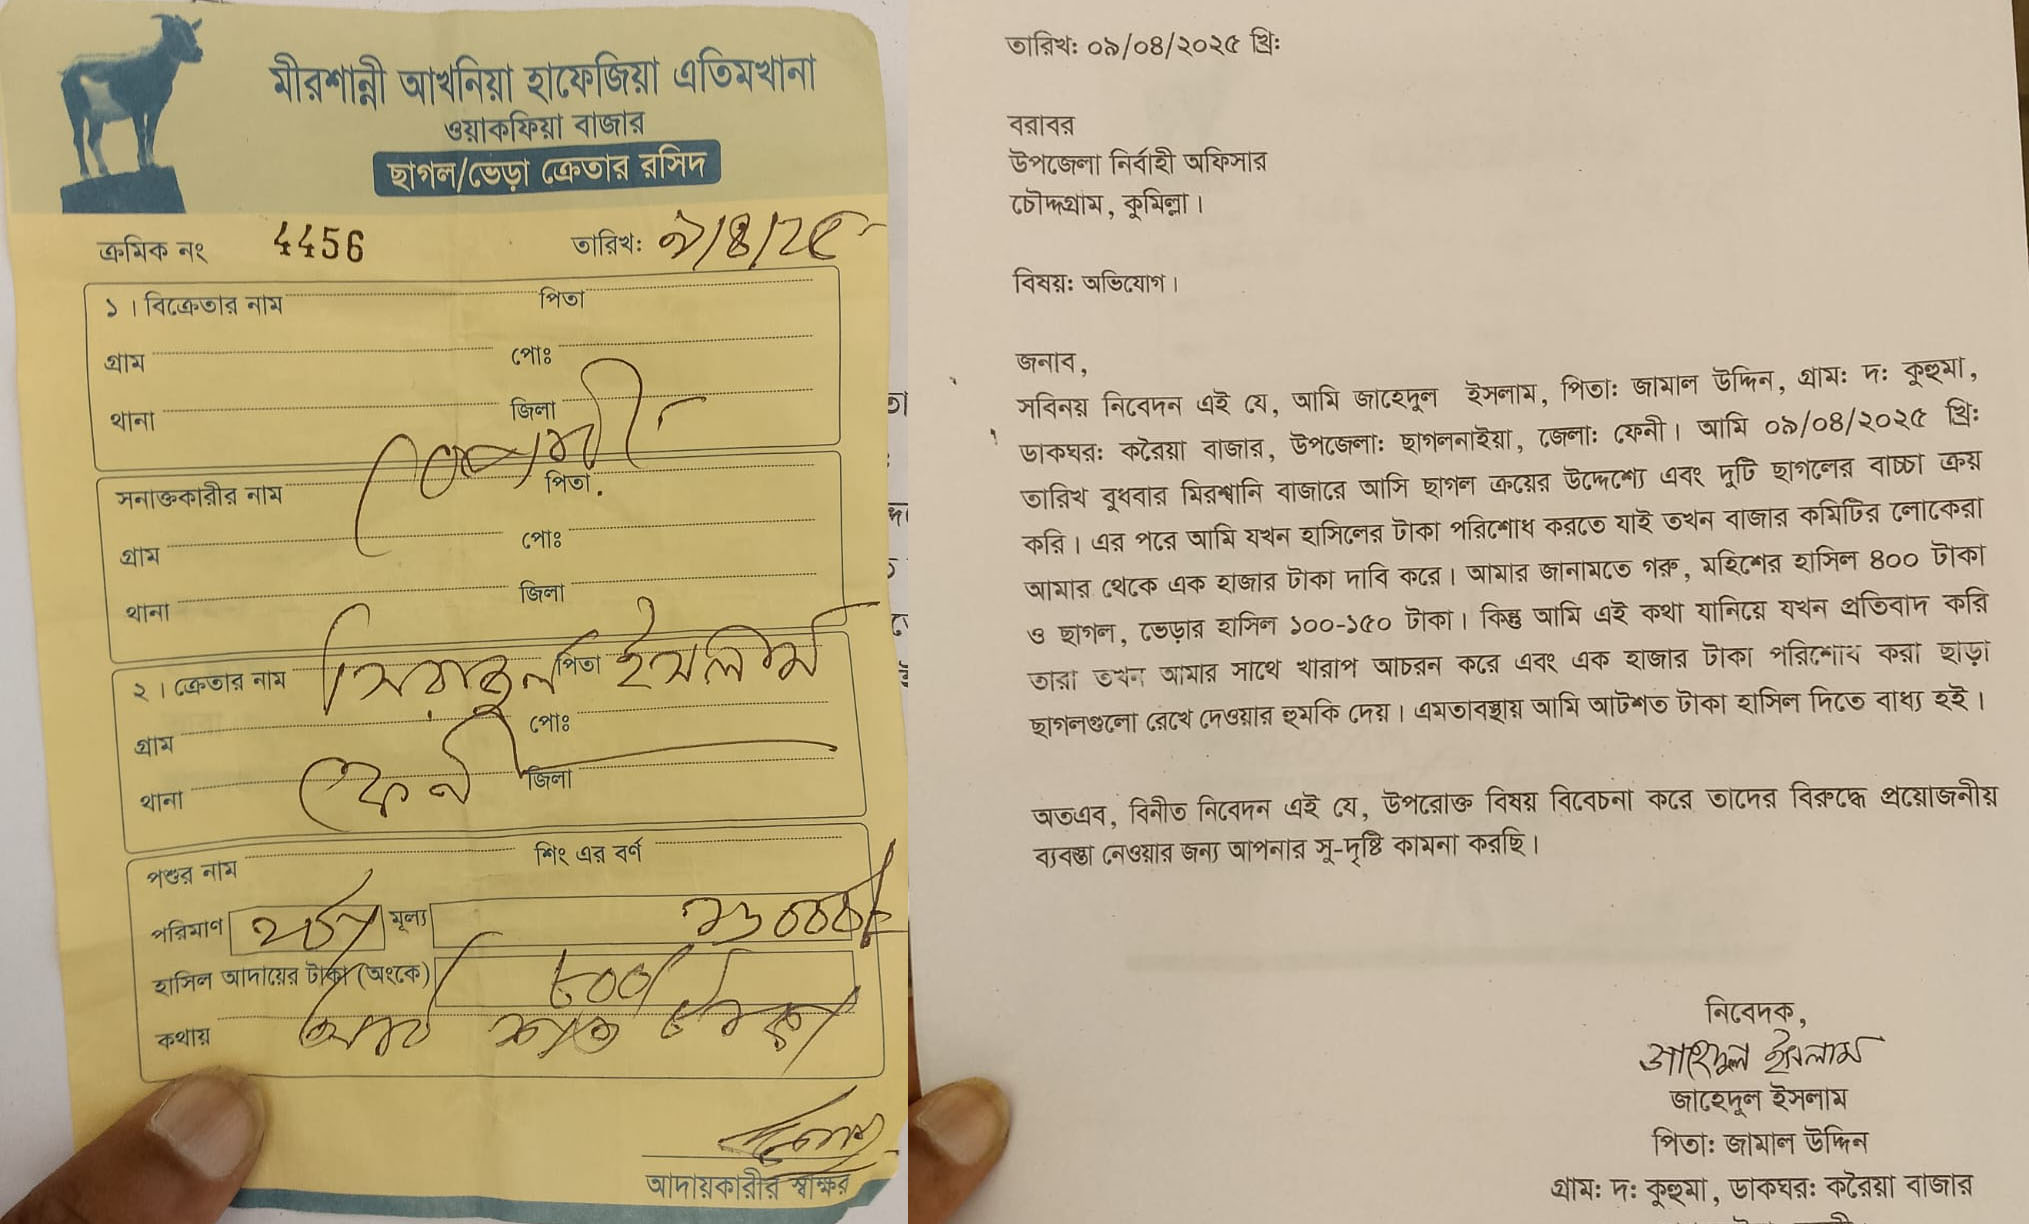 মীরশান্নী আখনিয়া হাফেজিয়া এতিমখানা
ওয়াকফিয়া বাজার
ছাগল/ভেড়া ক্রেতার রসিদ
ক্রমিক নং 4456 তারিখ: ৯/৪/২৫
১। বিক্রেতার নাম পিতা
গ্রাম পোঃ
থানা জিলা
সনাক্তকারীর নাম পিতা
গ্রাম পোঃ
থানা জিলা
২। ক্রেতার নাম পিতা ইসলাম
গ্রাম পোঃ
থানা ফেনী জিলা
পশুর নাম শিং এর বর্ণ
পরিমাণ ২টা মূল্য
হাসিল আদায়ের টাকা (অংকে) ৮০০/
কথায় আট শত টাকা
আদায়কারীর স্বাক্ষর
তারিখ: ০৯/০৪/২০২৫ খ্রি:
বরাবর
উপজেলা নির্বাহী অফিসার
চৌদ্দগ্রাম, কুমিল্লা।
বিষয়: অভিযোগ।
জনাব,
সবিনয় নিবেদন এই যে, আমি জাহেদুল ইসলাম, পিতা: জামাল উদ্দিন, গ্রাম: দ: কুহুমা,
ডাকঘর: করৈয়া বাজার, উপজেলা: ছাগলনাইয়া, জেলা: ফেনী। আমি ০৯/০৪/২০২৫ খ্রি:
তারিখ বুধবার মিরশ্বানি বাজারে আসি ছাগল ক্রয়ের উদ্দেশ্যে এবং দুটি ছাগলের বাচ্চা ক্রয়
করি। এর পরে আমি যখন হাসিলের টাকা পরিশোধ করতে যাই তখন বাজার কমিটির লোকেরা
আমার থেকে এক হাজার টাকা দাবি করে। আমার জানামতে গরু, মহিশের হাসিল ৪০০ টাকা
ও ছাগল, ভেড়ার হাসিল ১০০-১৫০ টাকা। কিন্তু আমি এই কথা যানিয়ে যখন প্রতিবাদ করি
তারা তখন আমার সাথে খারাপ আচরন করে এবং এক হাজার টাকা পরিশোধ করা ছাড়া
ছাগলগুলো রেখে দেওয়ার হুমকি দেয়। এমতাবস্থায় আমি আটশত টাকা হাসিল দিতে বাধ্য হই।
অতএব, বিনীত নিবেদন এই যে, উপরোক্ত বিষয় বিবেচনা করে তাদের বিরুদ্ধে প্রয়োজনীয়
ব্যবস্তা নেওয়ার জন্য আপনার সু-দৃষ্টি কামনা করছি।
নিবেদক,
জাহেদুল ইসলাম
জাহেদুল ইসলাম
পিতা: জামাল উদ্দিন
গ্রাম: দ: কুহুমা, ডাকঘর: করৈয়া বাজার